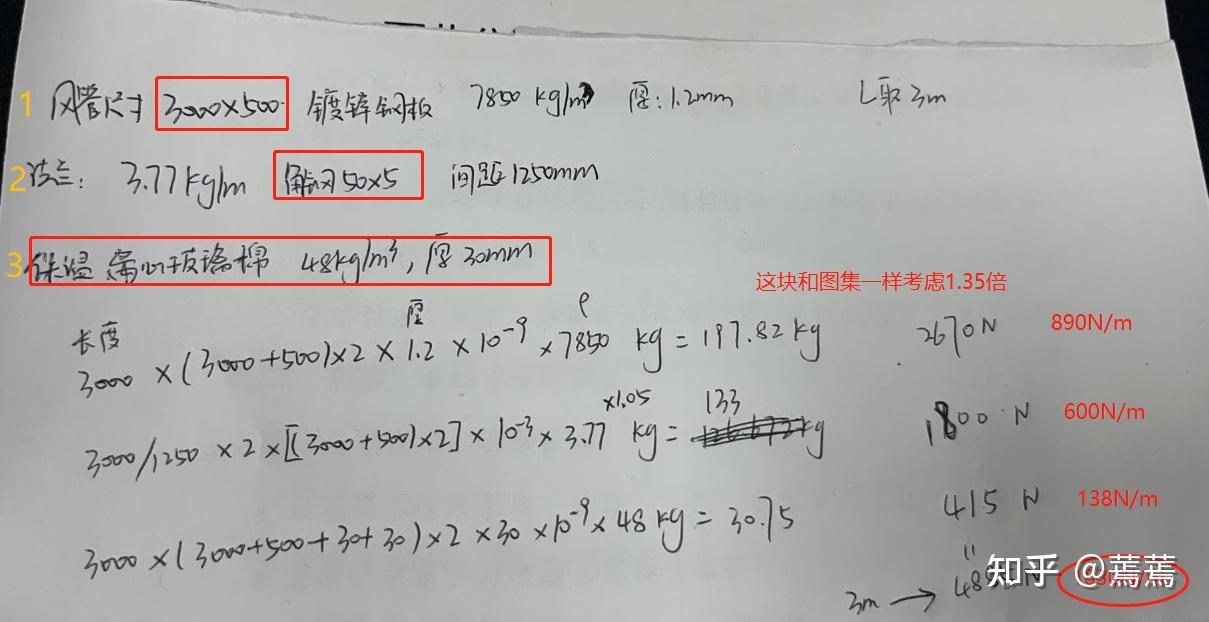 1 风管尺寸 3000×500 镀锌钢板 7850 kg/m³ 厚:1.2mm L取3m
2 法兰: 3.77kg/m 角钢50×5 间距1250mm
3 保温 离心玻璃棉 48kg/m³, 厚30mm
这块和图集一样考虑1.35倍
长度 厚 ρ
3000 × (3000+500)×2 × 1.2 × 10⁻⁹ ×7850 kg = 197.82 kg 2670N 890N/m
×1.05 133
3000/1250 × 2 ×[(3000+500)×2] × 10⁻³ × 3.77 kg = kg 1800 N 600N/m
3000 × (3000+500+30+30) × 2 × 30 × 10⁻⁹ × 48 kg = 30.75 415 N 138N/m
=
3m → 知乎 @蔫蔫